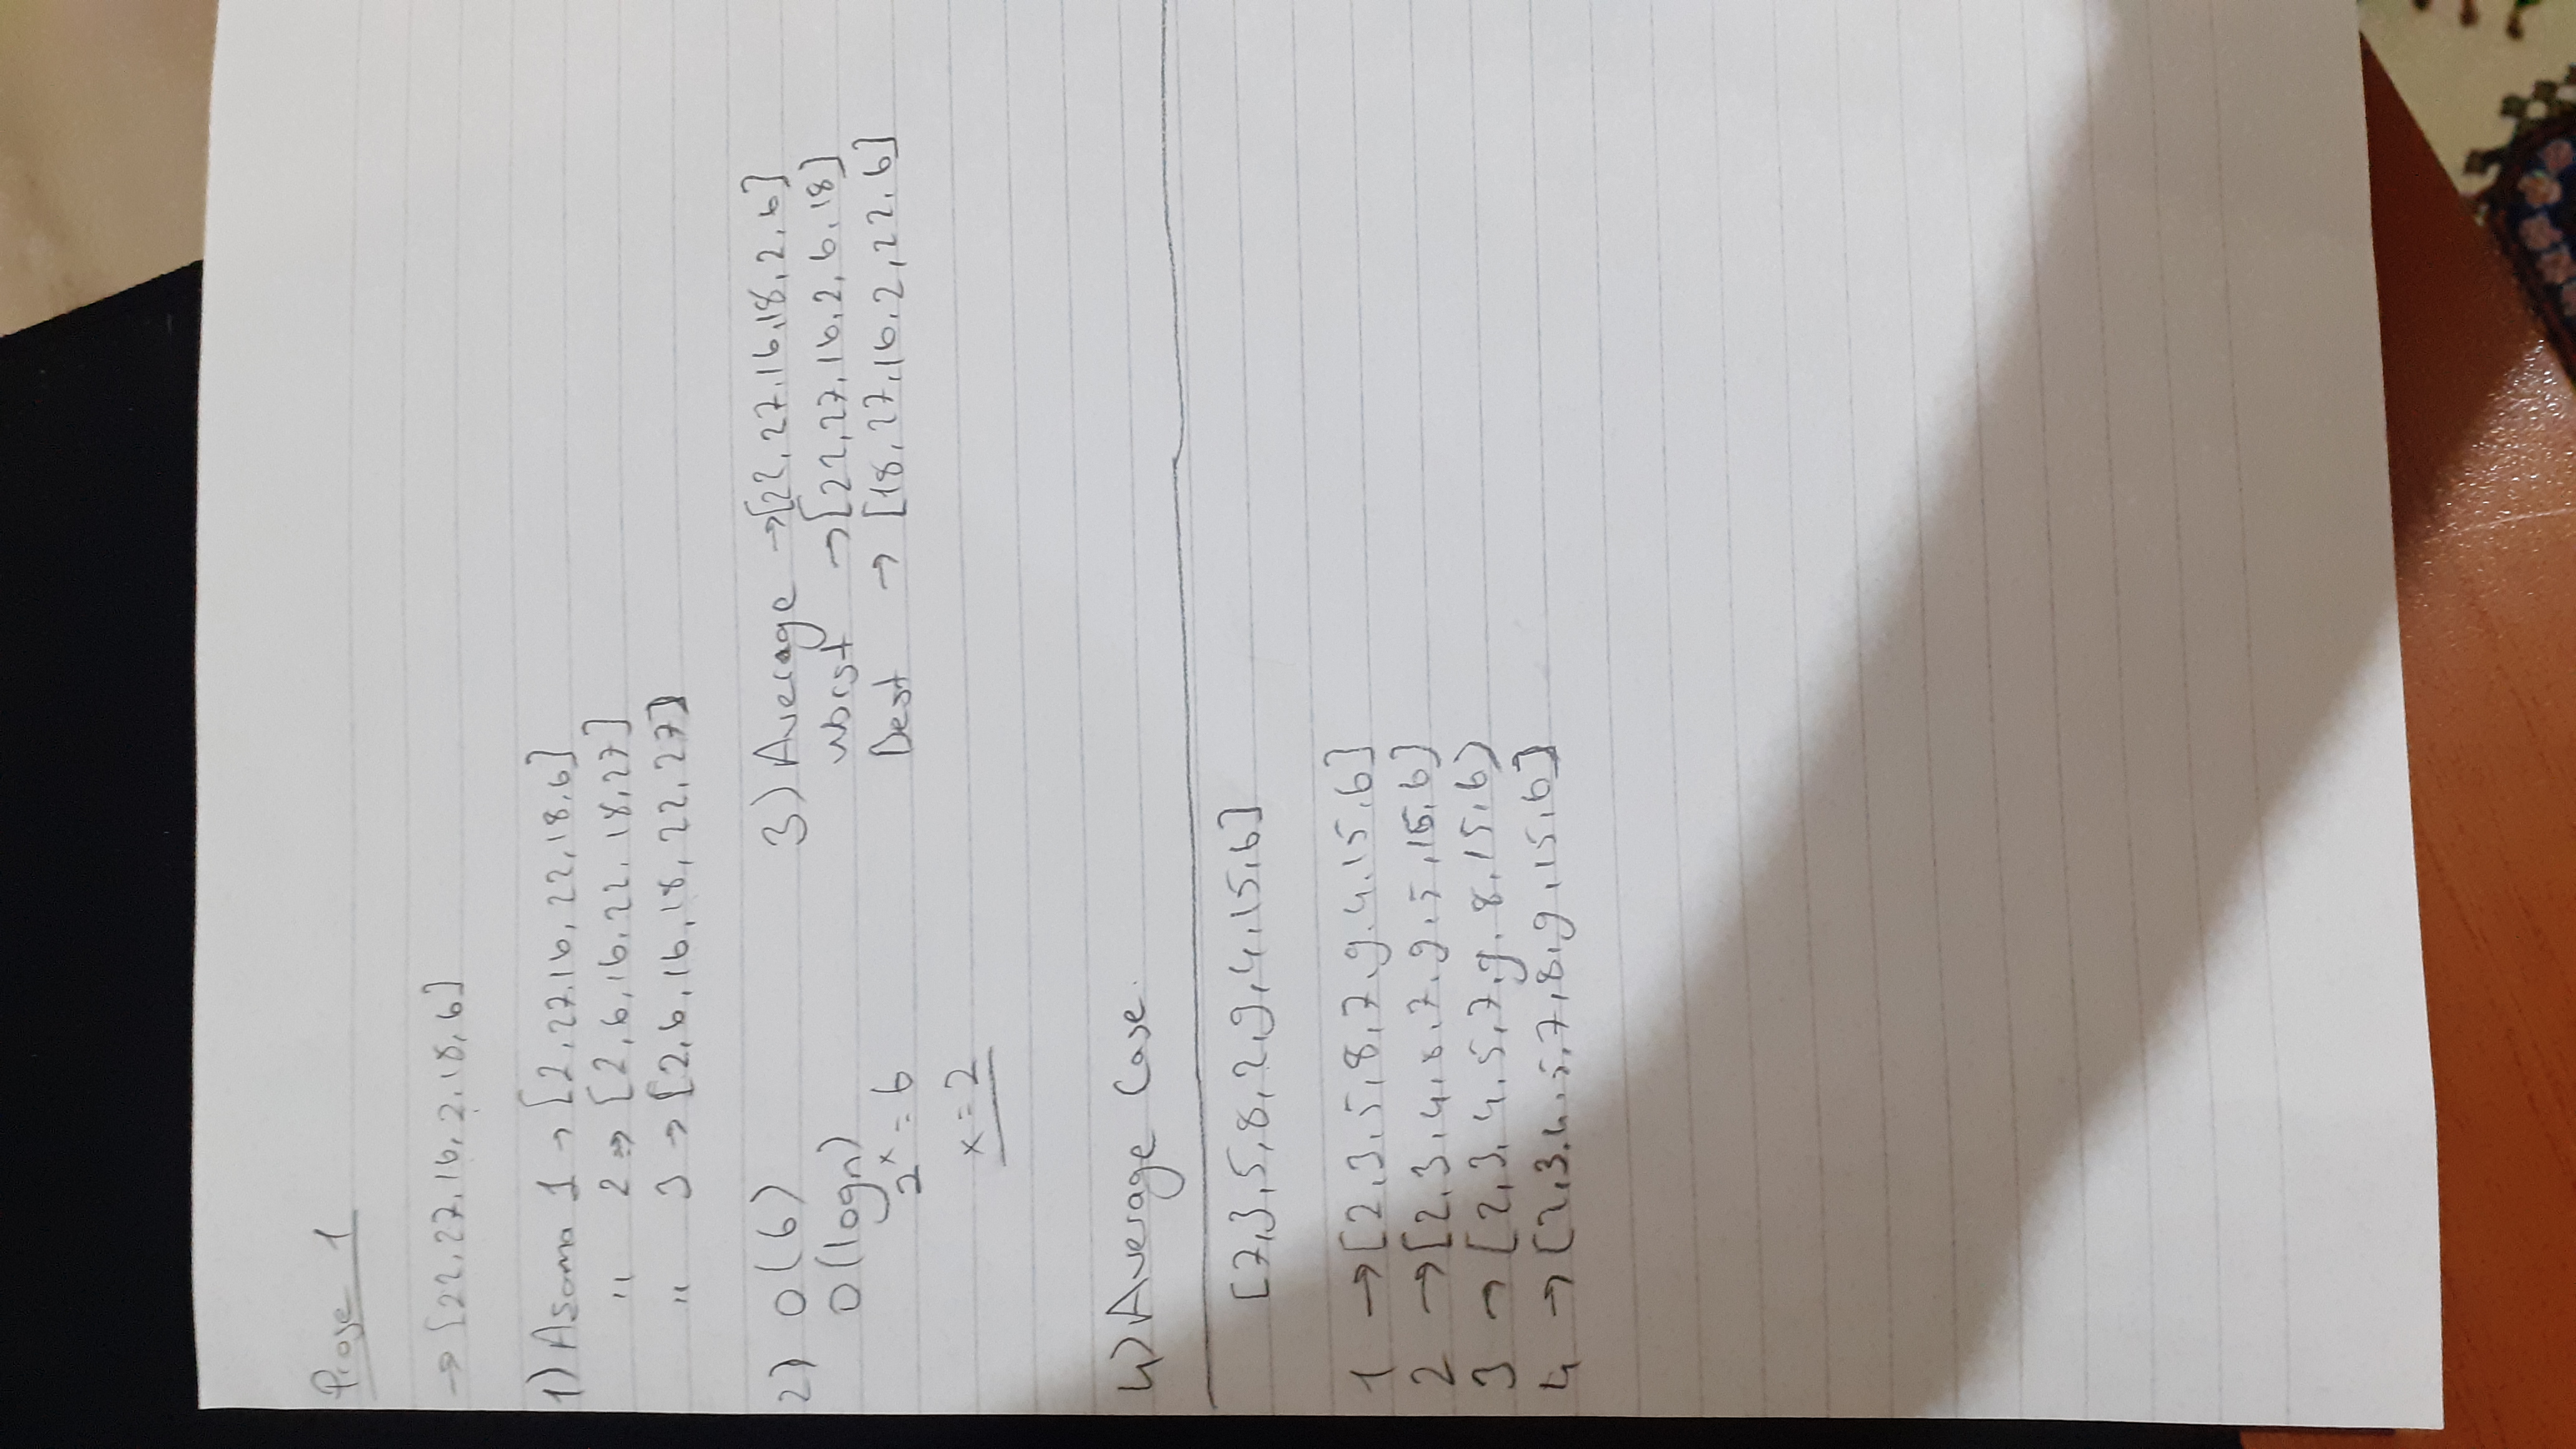 Proje 1
→ [22,27,16,2,18,6]
1) Aşama 1 → [2,27,16,22,18,6]
" 2 → [2,6,16,22,18,27]
" 3 → [2,6,16,18,22,27]
2) O(6)
O(logn)
2ˣ = 6
x = 2
3) Average → [22,27,16,18,2,6]
Worst → [22,27,16,2,6,18]
Best → [18,27,16,2,22,6]
4) Average Case.
[7,3,5,8,2,9,4,15,6]
1 → [2,3,5,8,7,9,4,15,6]
2 → [2,3,4,8,7,9,5,15,6]
3 → [2,3,4,5,7,9,8,15,6]
4 → [2,3,4,5,7,8,9,15,6]